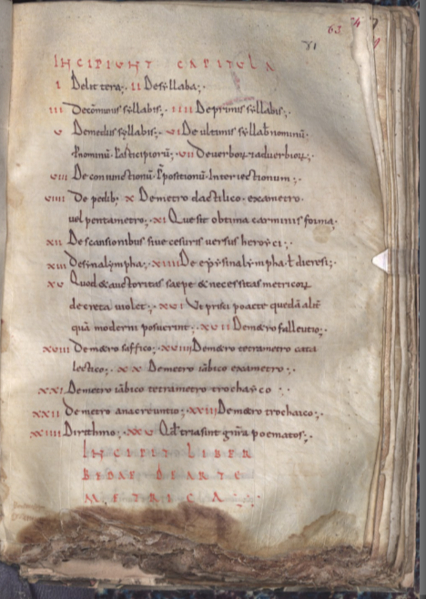 63
VI
INCIPIUNT CAPITULA
I De littera; II De syllaba;
III De cōmunib; syllabis; IIII De primis syllabis;
V De mediis syllabis; VI De ultimis syllab nominū
Pnominū Participiorū; VII De verboꝝ 7 adverbioꝝ;
VIII De coniunctionū Ppositionū Interiectionum;
VIIII De pedib; X De metro dactilico exametro
vel pentametro; XI Que sit obtima carminis forma
XII De scansionibus sive cesuris versus heroyci;
XIII De synalympha; XIIII De episinalympha ł dieresi;
XV Quod & auctoritas saepe & necessitas metricoꝝ
decreta violet; XVI Ut prisci poaete quedā alit
quā moderni posuerint; XVII De metro falleutio;
XVIII De metro saffico; XVIIII De metro tetrametro cata
lectico; XX De metro iābico exametro;
XXI De metro iābico tetrametro
XXII De metro anacreuntio; XXIII De metro trochaico;
XXIIII De rithmo; XXV Qđ tria sint genera poematos;
INCIPIT LIBER
BEDAE DE ARTE
METRICA